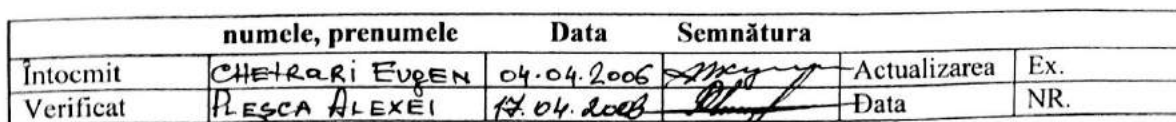 numele, prenumele Data Semnătura
Întocmit CHEIRARI EUGEN 04.04.2006 Actualizarea Ex.
Verificat PLEȘCA ALEXEI 17.04. Data NR.